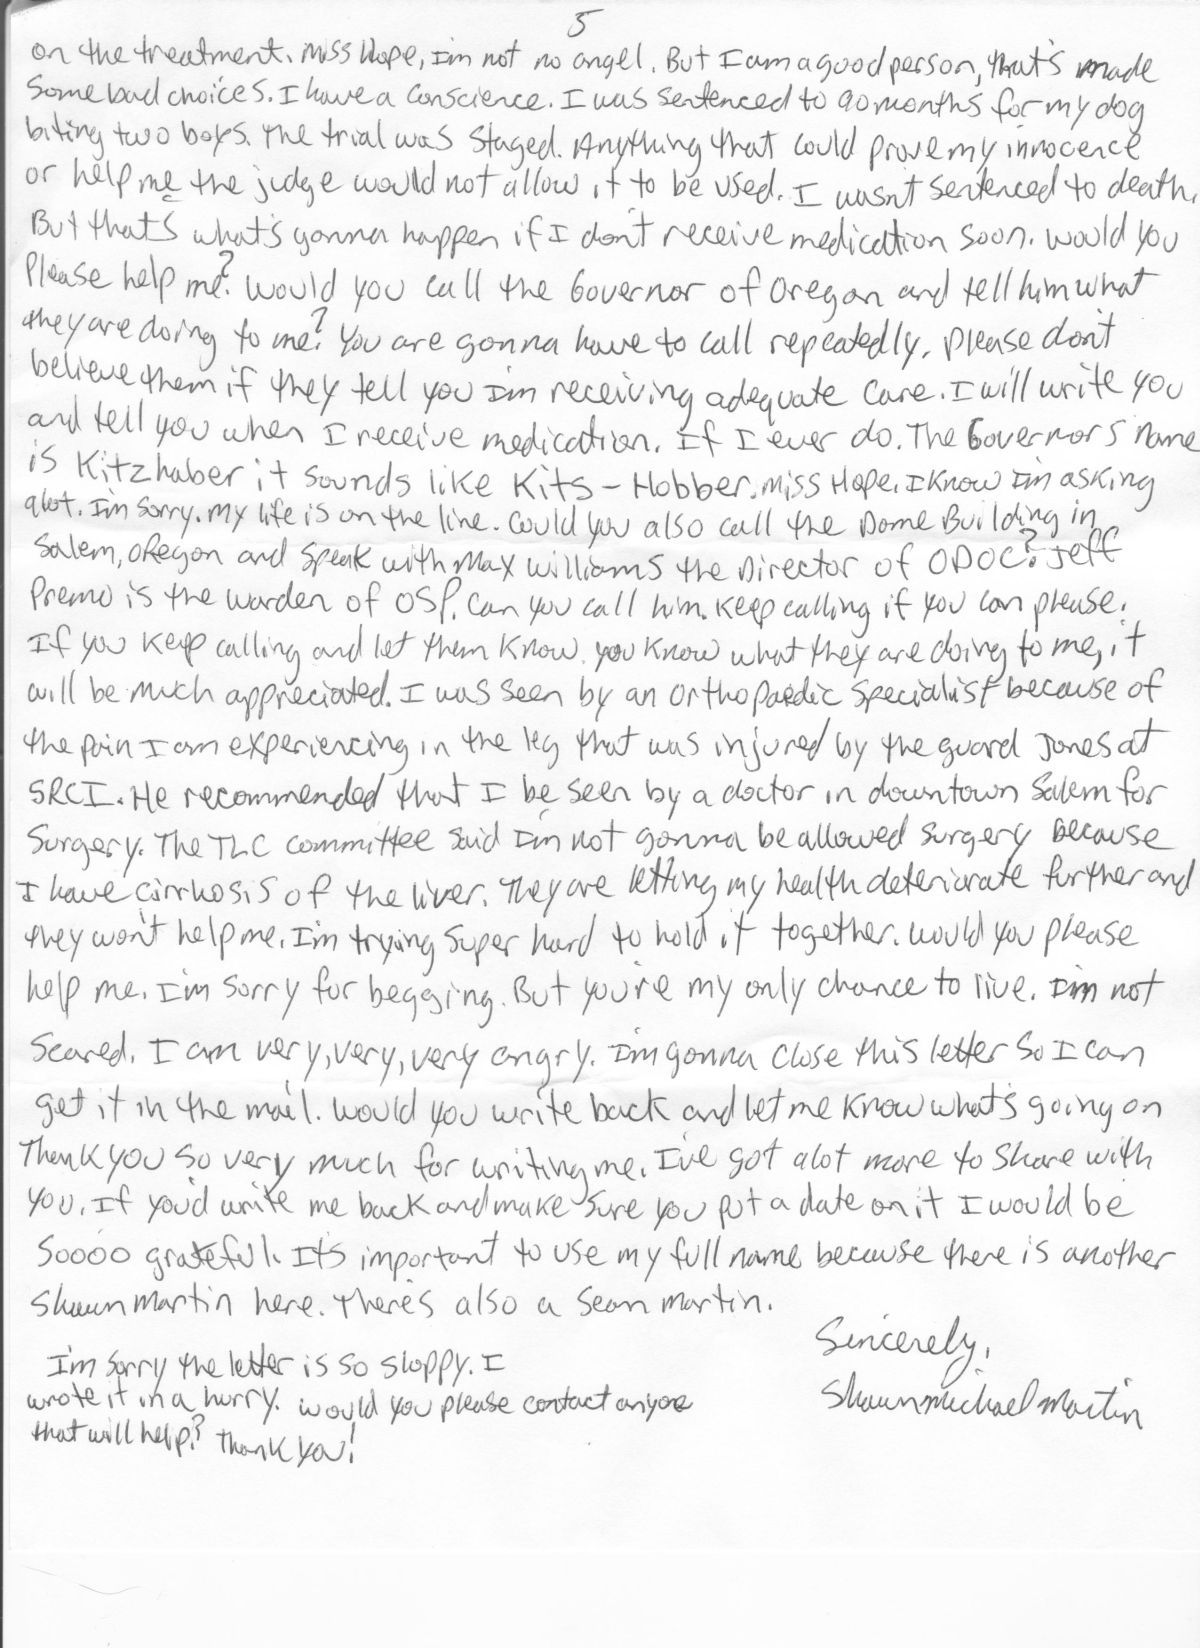 5
on the treatment. Miss Hope, I'm not no angel. But I am a good person, that's made
Some bad choices. I have a conscience. I was sentenced to 90 months for my dog
biting two boys. The trial was staged. Anything that could prove my innocence
or help me the judge would not allow it to be used. I wasn't sentenced to death.
But that's what's gonna happen if I don't receive medication soon. Would you
Please help me? Would you call the Governor of Oregon and tell him what
they are doing to me? You are gonna have to call repeatedly. Please don't
believe them if they tell you I'm receiving adequate care. I will write you
and tell you when I receive medication. If I ever do. The Governor's name
is Kitzhaber it sounds like Kits-Hobber. Miss Hope. I know I'm asking
alot. I'm sorry. My life is on the line. Could you also call the Dome Building in
Salem, Oregon and speak with Max Williams the Director of ODOC? Jeff
Premo is the warden of OSP. Can you call him. Keep calling if you can please.
If you keep calling and let them know you know what they are doing to me, it
will be much appreciated. I was seen by an Orthopaedic Specialist because of
the pain I am experiencing in the leg that was injured by the guard Jones at
SRCI. He recommended that I be seen by a doctor in downtown Salem for
Surgery. The TLC committee said I'm not gonna be allowed surgery because
I have cirrhosis of the liver. They are letting my health deteriorate further and
they won't help me. I'm trying super hard to hold it together. Would you please
help me. I'm sorry for begging. But you're my only chance to live. I'm not
Scared. I am very, very, very angry. I'm gonna close this letter so I can
get it in the mail. Would you write back and let me know what's going on
Thank you so very much for writing me. I've got alot more to share with
you. If you'd write me back and make sure you put a date on it I would be
Soooo grateful. It's important to use my full name because there is another
Shawn Martin here. There's also a Sean Martin.
Sincerely,
Shawn Michael Martin
I'm sorry the letter is so sloppy. I
wrote it in a hurry. Would you please contact anyone
that will help? Thank you!